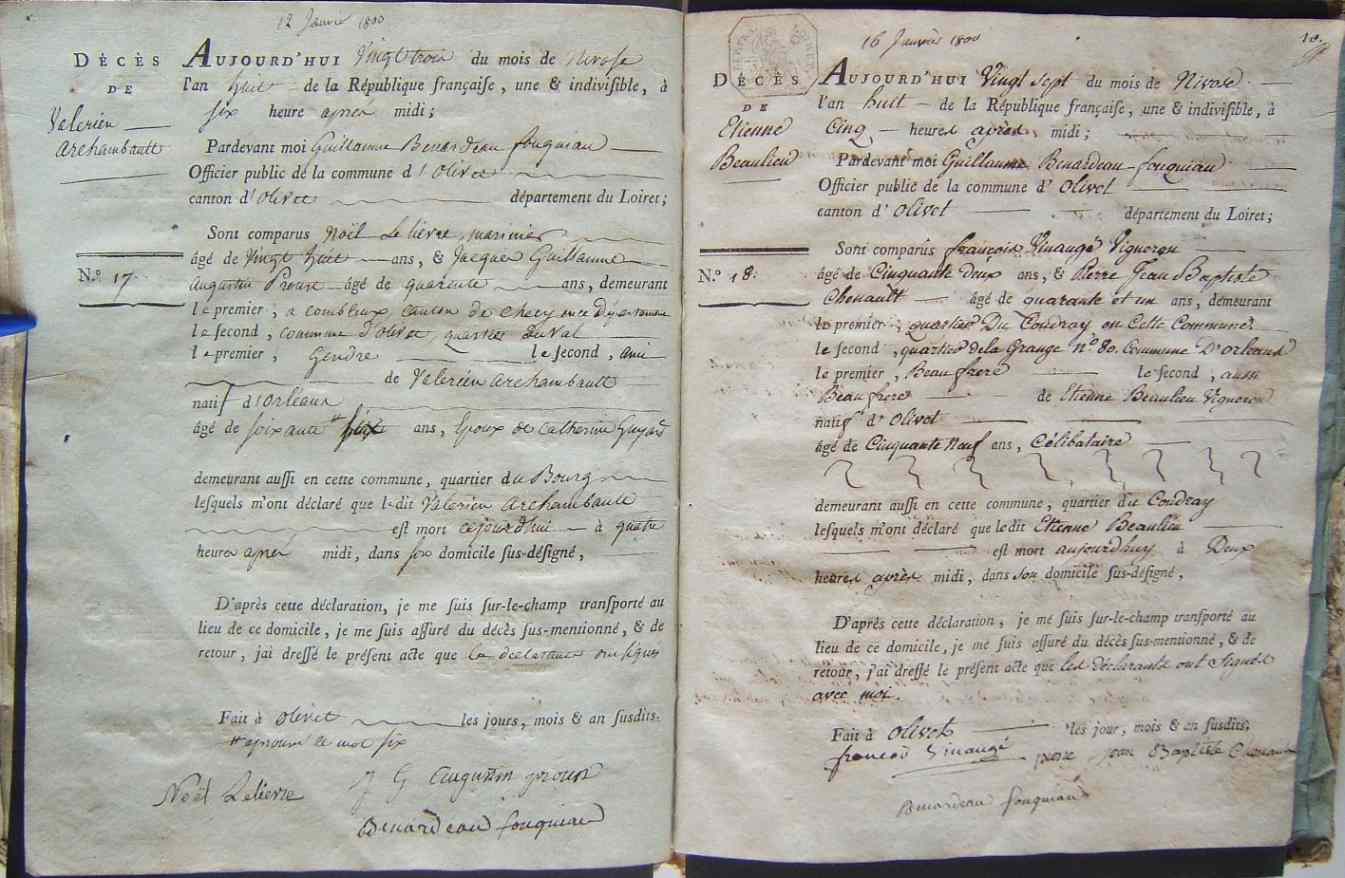 12 Janvier 1800
DÉCÈS
DE
Valerien
Archambault
N.º 17
AUJOURD'HUI Vingt trois du mois de Nivose
l'an huit de la République françaiſe, une & indiviſible, à
ſix heure après midi;
Pardevant moi Guillaume Benardeau fouquiau
Officier public de la commune d'Olivet
canton d'Olivet département du Loiret;
Sont comparus Noël Lelievre, marinier
âgé de Vingt huit ans, & Jacques Guillaume
Augustin Proust âgé de quarente ans, demeurant
le premier, a combleux, canton de Checy
le ſecond, commune d'olivet, quartier du Val
le premier, Gendre le ſecond, ami
de Valerien Archambault
natif d'Orleans
âgé de ſoixante ans, Epoux de Catherine
demeurant auſſi en cette commune, quartier du Bourg
leſquels m'ont déclaré que ledit Valerien Archambault
eſt mort cejourd'hui à quatre
heures après midi, dans ſon domicile ſus-déſigné,
D'après cette déclaration, je me ſuis ſur-le-champ tranſporté au
lieu de ce domicile, je me ſuis aſſuré du décès ſus-mentionné, & de
retour, j'ai dreſſé le préſent acte que
Fait à Olivet les jours, mois & an ſuſdits.
le mot ſix
Noël Lelievre J G Augustin proust
Benardeau fouquiau
16 Janvier 1800
18.
DÉCÈS
DE
Etienne
Beaulieu
N.º 18.
AUJOURD'HUI Vingt Sept du mois de Nivose
l'an huit de la République françaiſe, une & indiviſible, à
Cinq heures après midi;
Pardevant moi Guillaume Benardeau fouquiau
Officier public de la commune d'Olivet
canton d'Olivet département du Loiret;
Sont comparus françois Vinaugé Vigneron
âgé de Cinquante deux ans, & Pierre Jean Baptiste
Chenault âgé de quarante et un ans, demeurant
le premier, quartier Du Coudray en Cette Commune
le ſecond, quartier de la Grange nº 80. Commune D'orleans
le premier, Beau frere le ſecond, aussi
Beau frere de Etienne Beaulieu Vigneron
natif d'Olivet
âgé de Cinquante neuf ans, Célibataire
demeurant auſſi en cette commune, quartier du Coudray
leſquels m'ont déclaré que ledit Etienne Beaulieu
eſt mort aujourdhuy à Deux
heures après midi, dans son domicile ſus-déſigné,
D'après cette déclaration, je me ſuis ſur-le-champ tranſporté au
lieu de ce domicile, je me ſuis aſſuré du décès ſus-mentionné, & de
retour, j'ai dreſſé le préſent acte que les déclarants ont Signés
avec moi.
Fait à Olivet les jour, mois & an ſuſdits;
françois Vinaugé pierre jean Baptiste Chenault
Benardeau fouquiau